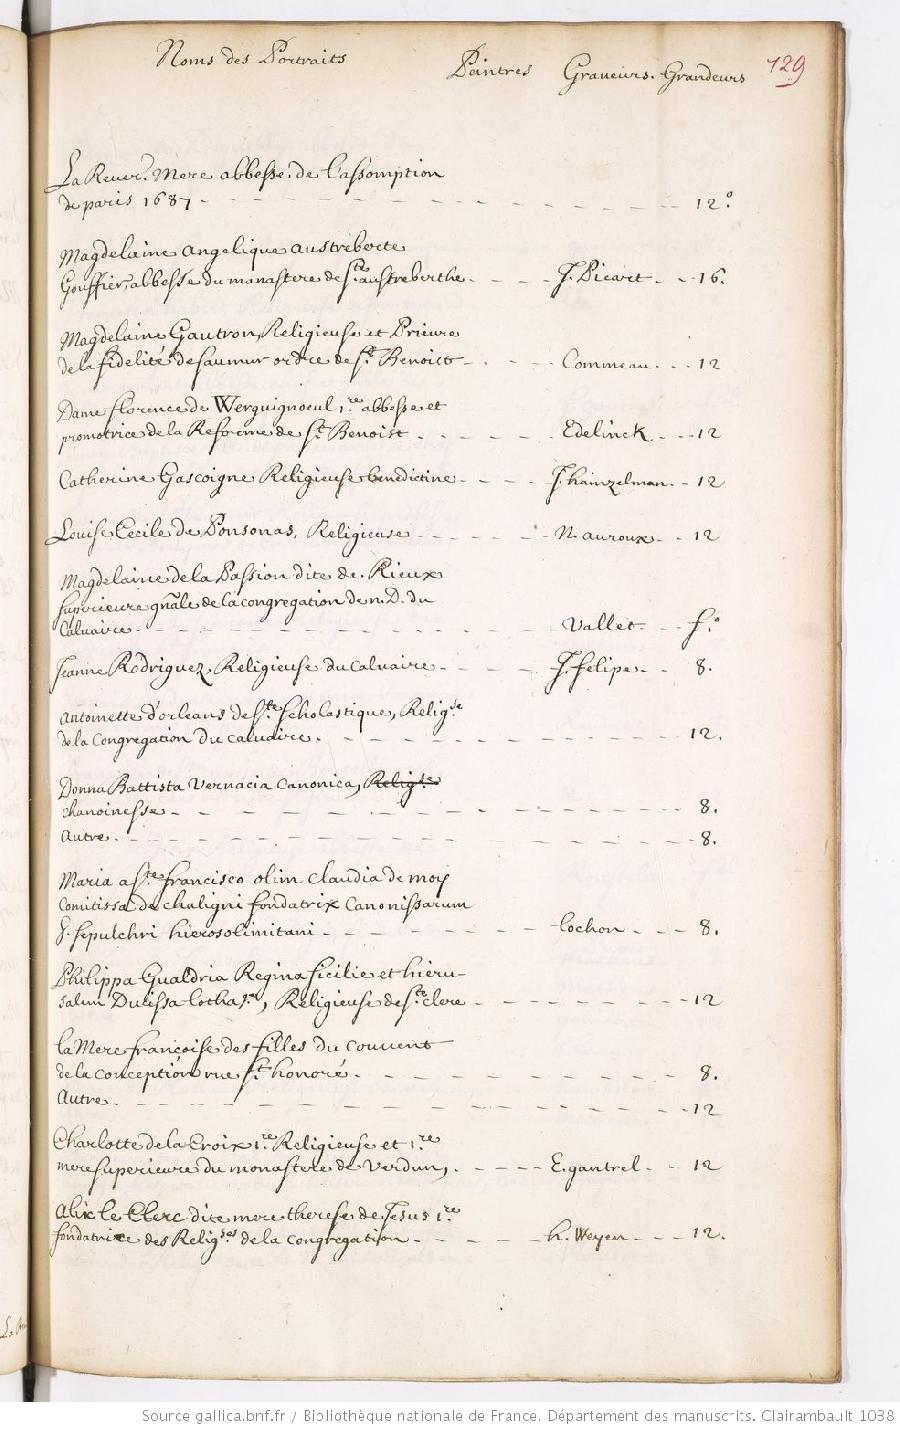 Noms des Portraits Peintres Graveurs. Grandeurs 129
La Rever. Mere abbesse de l'assomption
de paris 1687 - - - - - - - - - 12.°
Magdelaine angelique austreberte
Gouffier, abbesse du manastere de Ste. austreberthe - - - J. Picart - - 16.
Magdelaine Gautron, Religieuse et Prieure
de la fidelité de saumur ordre de St. Benoist - - - Commeau - - - 12
Dame florence de Werquignoeul 1.re abbesse et
promotrice de la Reforme de St. Benoist - - - - Edelinck - - - 12
Catherine Gascoigne Religieuse benedictine - - - J. hainzelman - - 12
Louise Cecile de Ponsonas, Religieuse - - - - - N. auroux - - 12
Magdelaine de la Passion dite de Rieux
superieure gñale de la congregation de n. D. du
Calvaire - - - - - - - - - Vallet - - f.°
Jeanne Rodriguez, Religieuse du calvaire - - - - J. felipe - - 8.
antoinette d'orleans de Ste. scholastique, Relig.se
de la Congregation du calvaire. - - - - - - - - 12.
Donna Battista Vernacia Canonica, Relig.se
chanoinesse - - - - - - - - - - 8.
autre - - - - - - - - - - - 8.
Maria a Sto. francisco olim claudia de moy
Comitissa de chaligni fondatrix Canonissarum
S. sepulchri hierosolimitani - - - - - - lochon - - - 8.
Philippa Gualdria Regina sicilie et hieru-
salim Ducissa lotha.ae, Religieuse de Ste. clere - - - - - - 12
la Mere françoise des filles du couvent
de la conception rue St. honoré. - - - - - - - - 8.
autre - - - - - - - - - - - 12
Charlotte de la Croix 1.re Religieuse et 1.re
mere superieure du monastere de Verdun, - - - - E. gantrel - - 12
alix le Clerc dite mere therese de Jesus 1.re
fondatrice des Relig.ses de la congregation - - - - h. Weyen - - - 12.
Source gallica.bnf.fr / Bibliothèque nationale de France. Département des manuscrits. Clairambault 1038